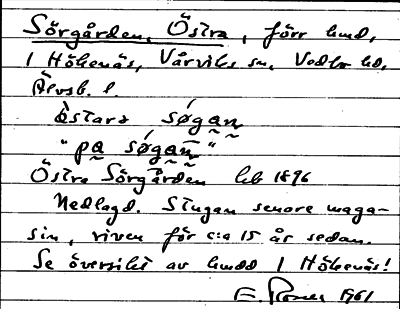 Sörgården, Östra, förr hmd,
i Hökenäs, Vårviks sn, Vedbo hd,
Älvsb. l.
östara søgan
"pa søgan"
Östra Sörgården leb 1896
Nedlagd. Stugan senore maga-
sin, riven för c:a 15 år sedan.
Se översikt av hmdd i Hökenäs!
E. Rosen 1961